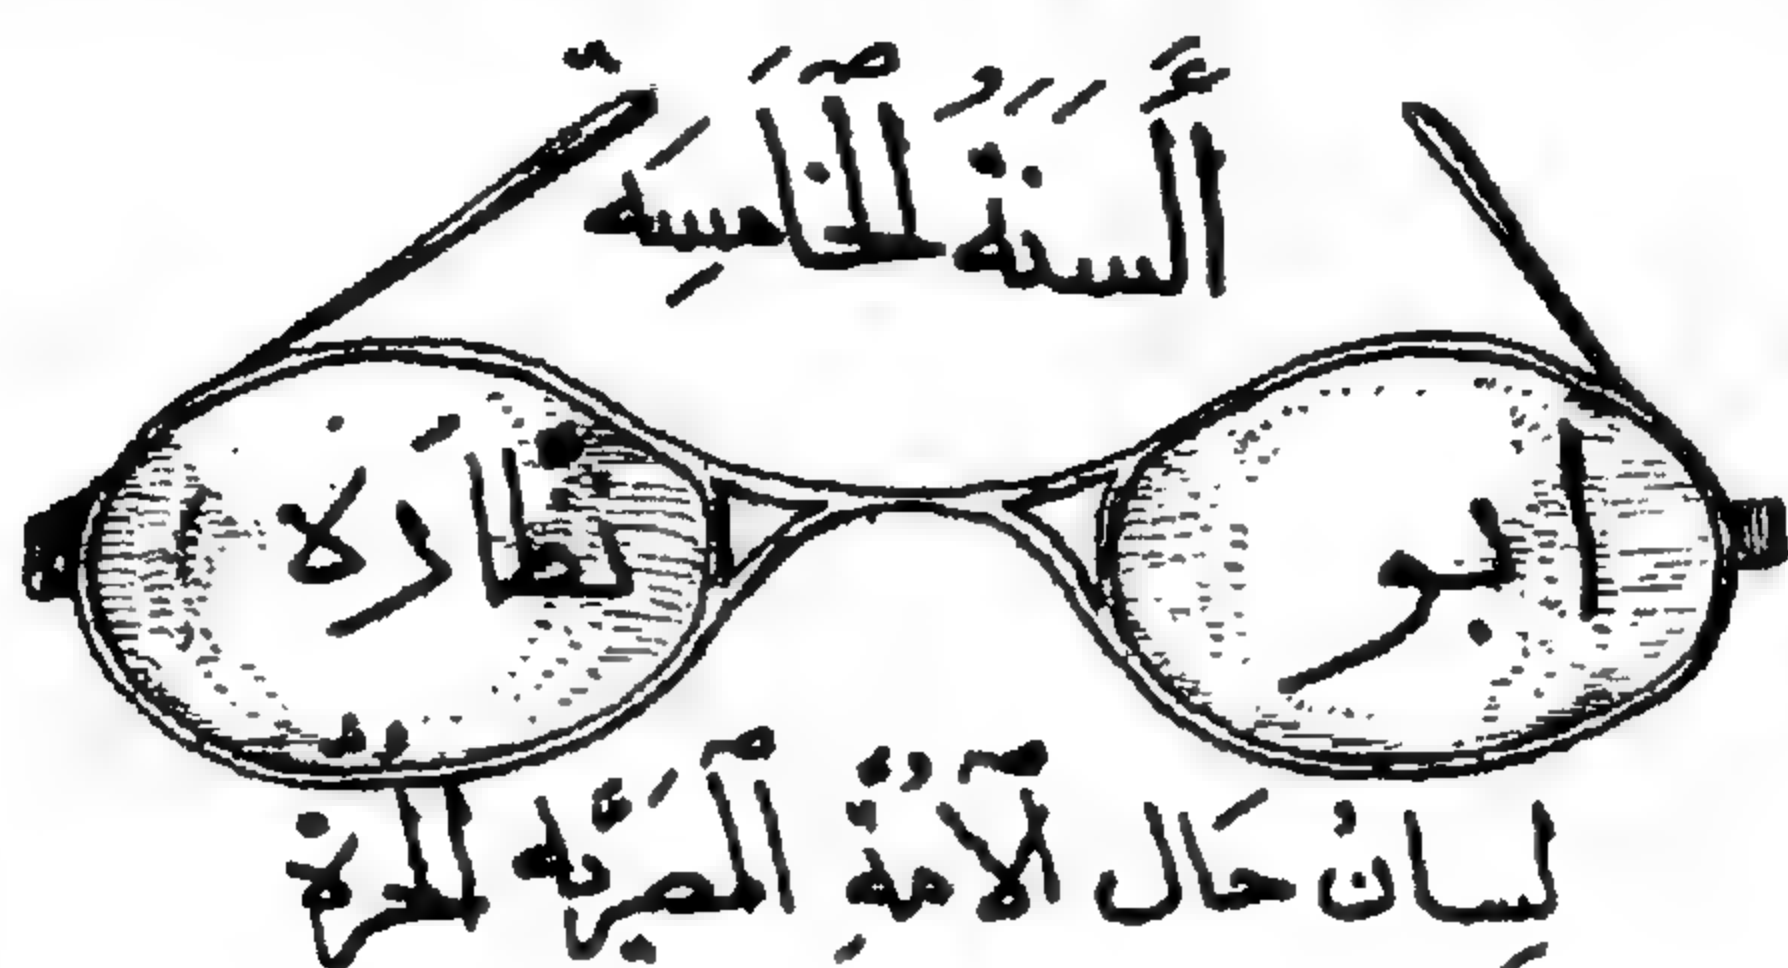 أَلسَنَةُ الخَامسِة
ابو نظاَره
لِسانُ حَال الأمةِ المصرّيه الحرة